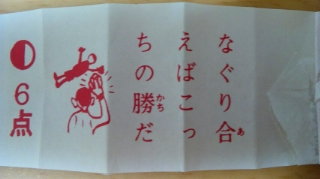 なぐり合
あ
えばこっ
ちの勝だ
かち
6点